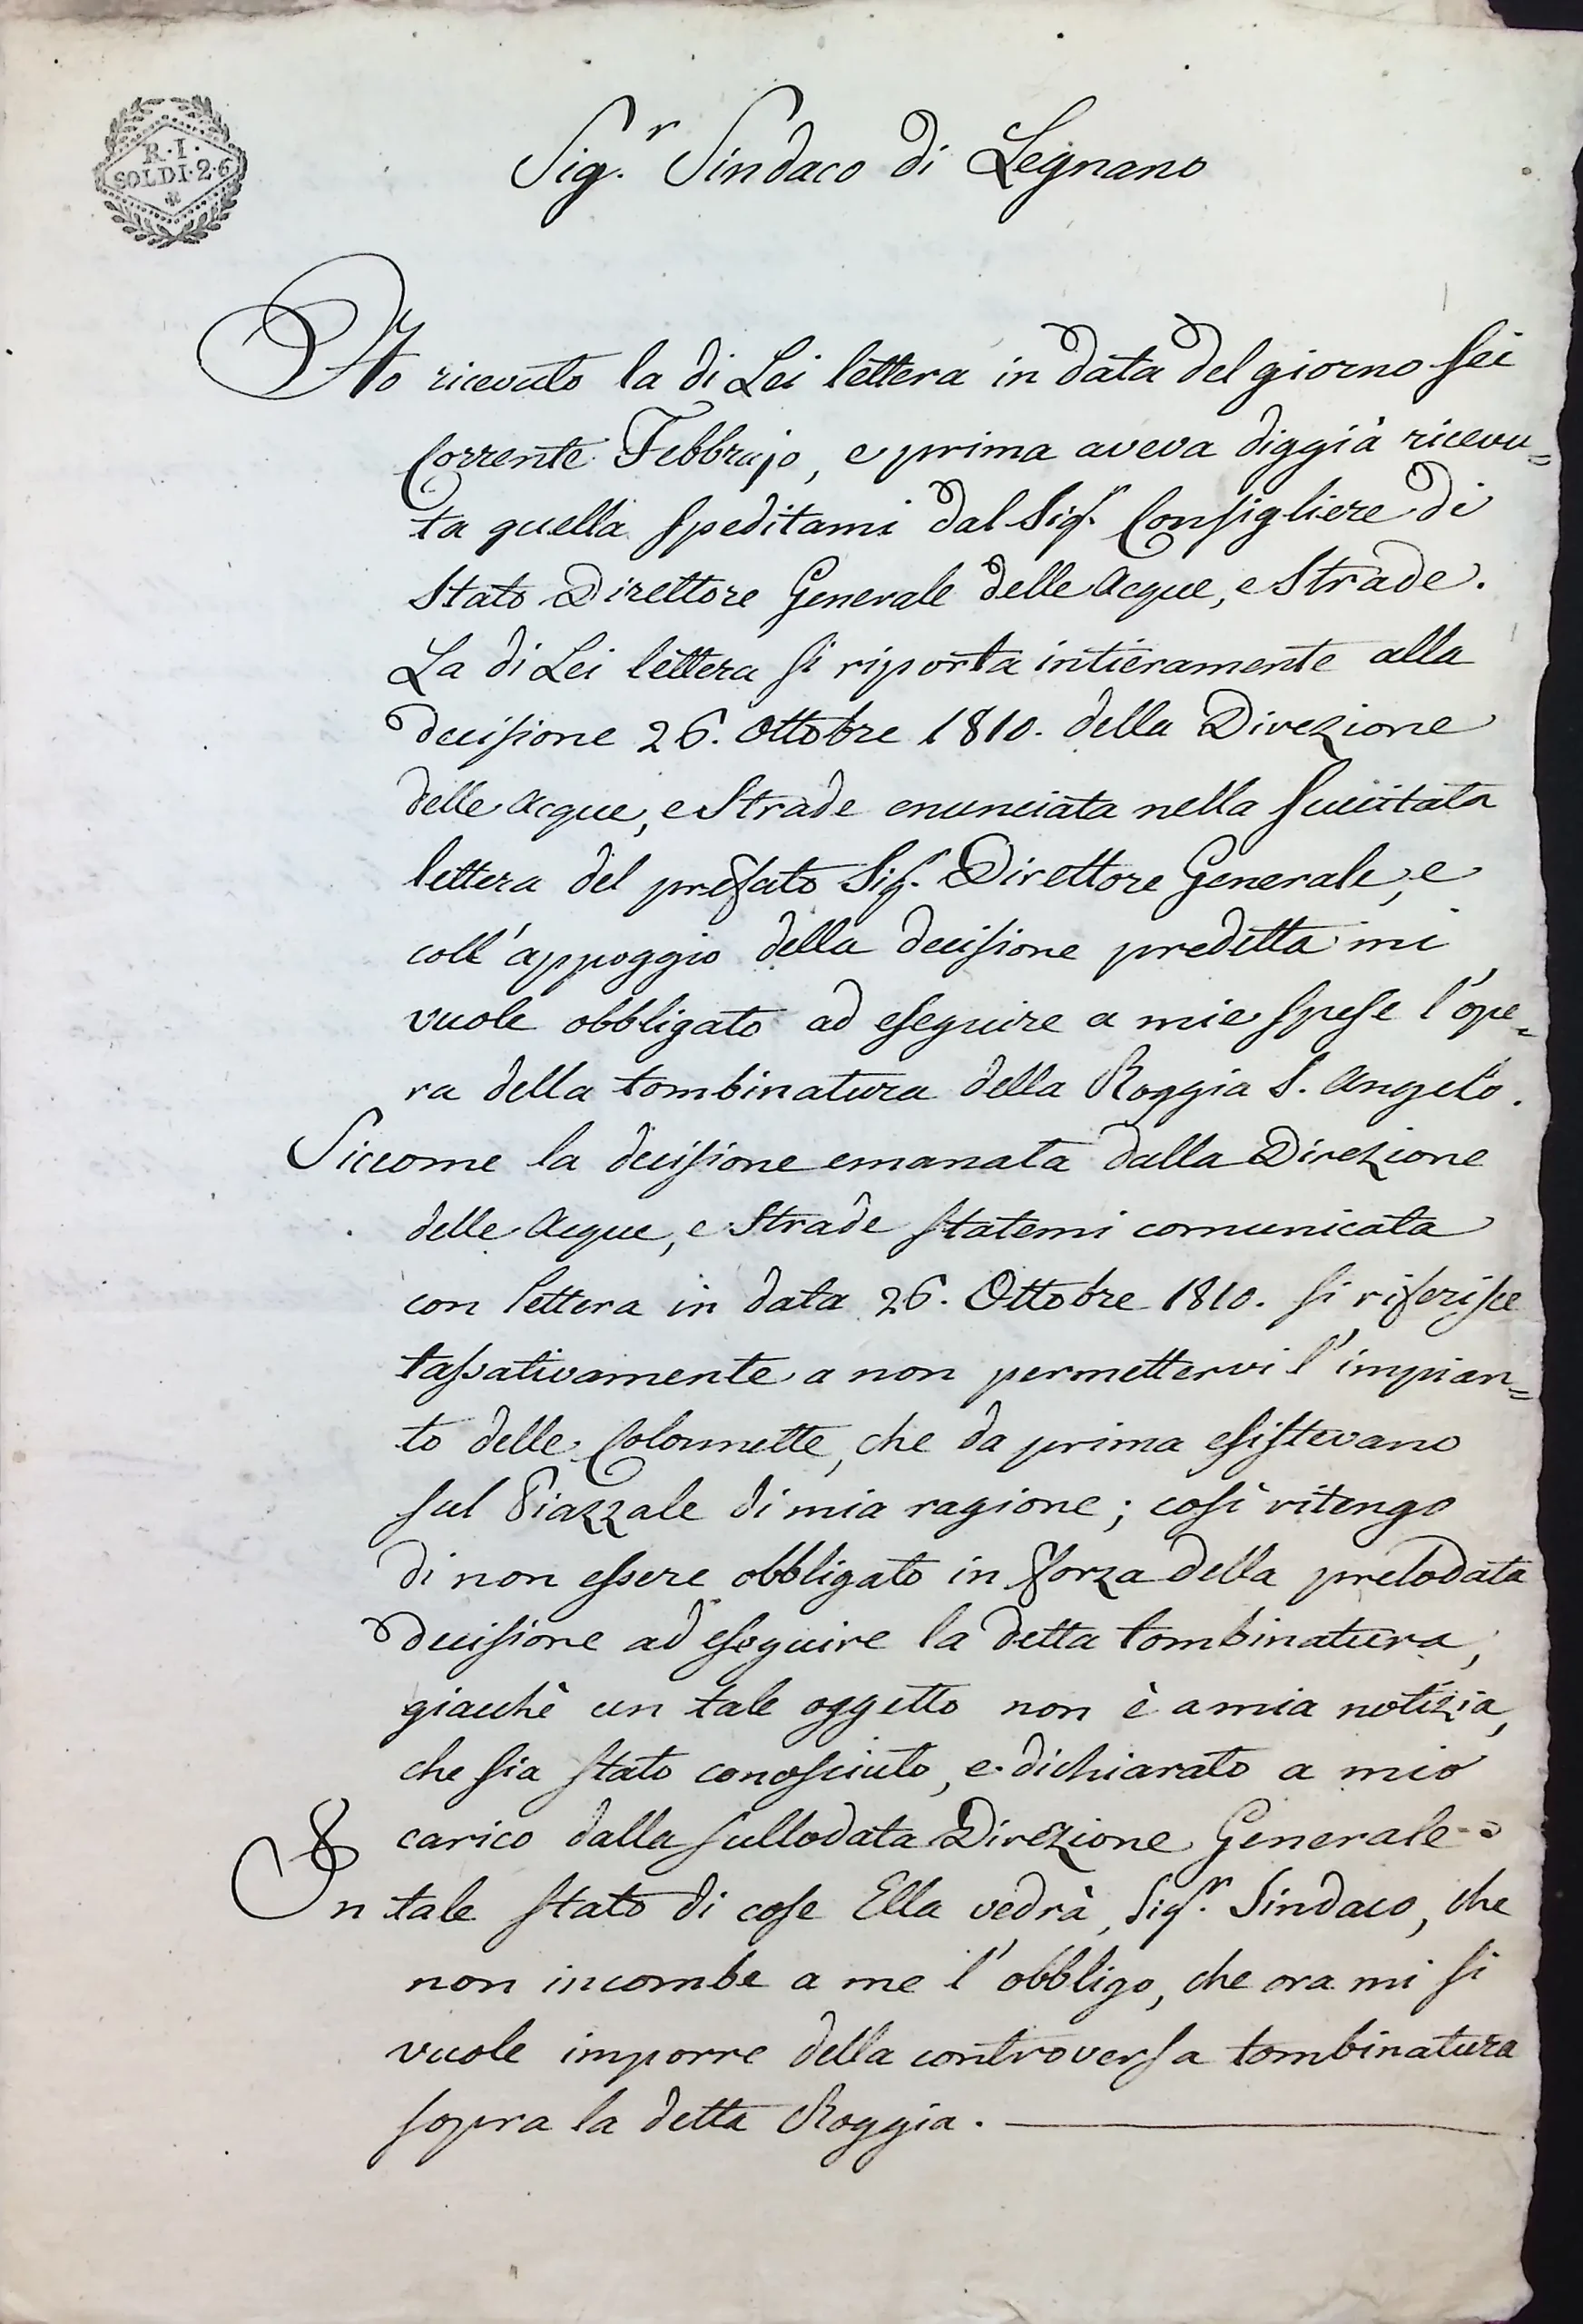 R. I.
SOLDI. 2. 6
Sig.r Sindaco di Legnano
Ho ricevuto la di Lei lettera in data del giorno sei
Corrente Febbrajo, e prima aveva diggià ricevu=
ta quella speditami dal Sig.r Consigliere di
Stato Direttore Generale delle Acque, e Strade.
La di Lei lettera si riporta intieramente alla
decisione 26. Ottobre 1810. della Direzione
delle Acque, e Strade enunciata nella succitata
lettera del prefato Sig.r Direttore Generale, e
coll'appoggio della decisione predetta mi
vuole obbligato ad eseguire a mie spese l'ope=
ra della tombinatura della Roggia S. Angelo.
Siccome la decisione emanata dalla Direzione
delle Acque, e Strade statemi comunicata
con lettera in data 26. Ottobre 1810. si riferisce
tassativamente a non permettervi l'impian=
to delle Colonnette, che da prima esistevano
sul Piazzale di mia ragione; così ritengo
di non essere obbligato in forza della prelodata
decisione ad eseguire la detta tombinatura,
giacchè un tale oggetto non è a mia notizia,
che sia stato conosciuto, e dichiarato a mio
carico dalla sullodata Direzione Generale
In tale stato di cose Ella vedrà, Sig.r Sindaco, che
non incombe a me l'obbligo, che ora mi si
vuole imporre della controversa tombinatura
sopra la detta Roggia.